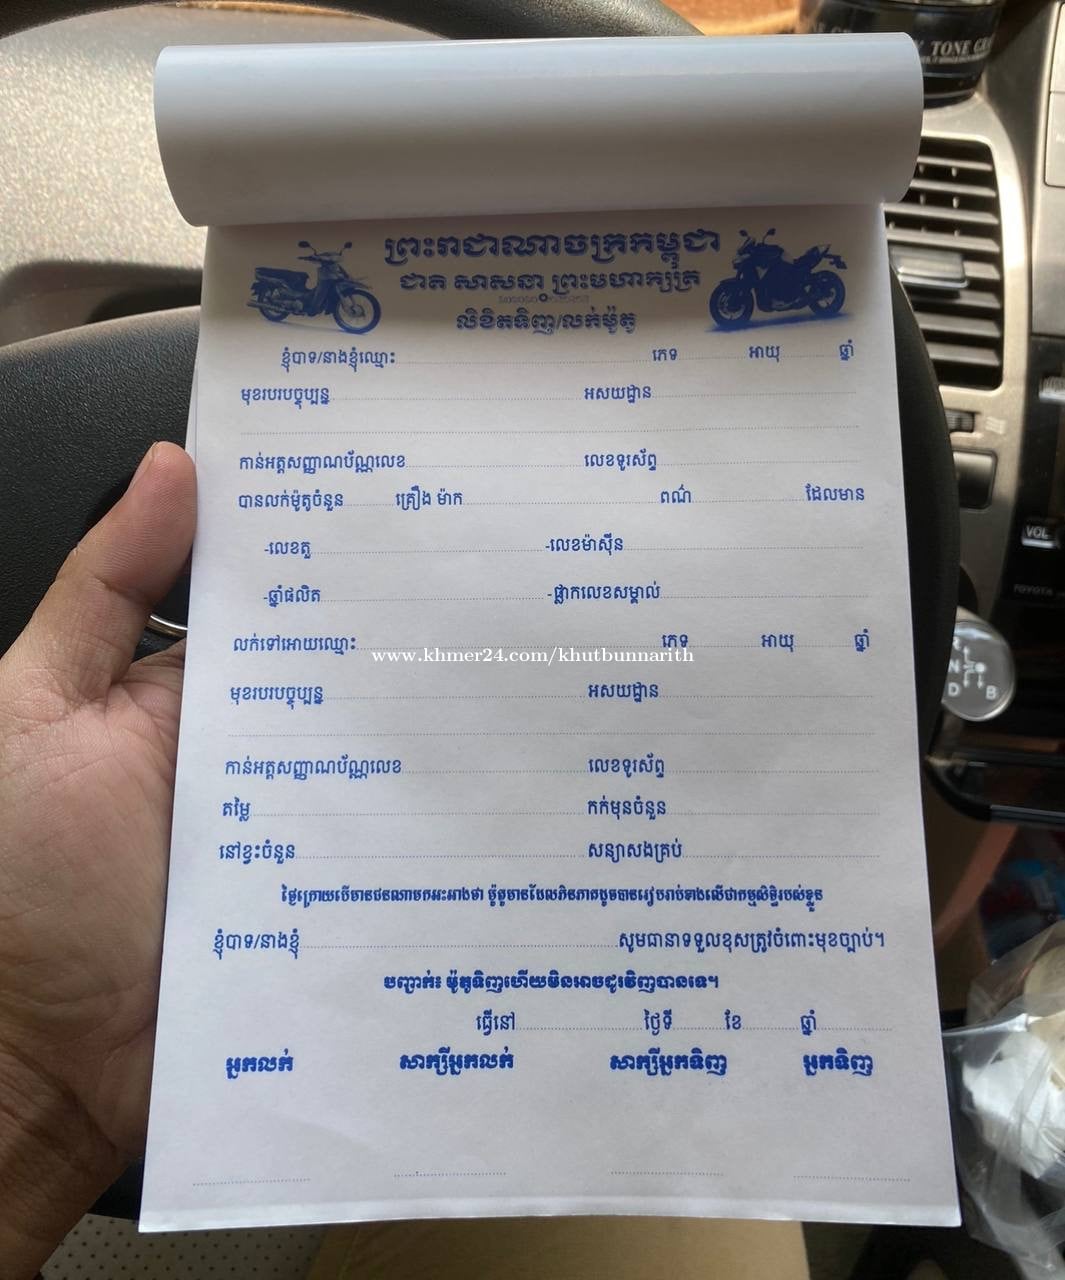 TONE
ព្រះរាជាណាចក្រកម្ពុជា
ជាតិ សាសនា ព្រះមហាក្សត្រ
លិខិតទិញ/លក់ម៉ូតូ
ខ្ញុំបាទ/នាងខ្ញុំឈ្មោះ ភេទ អាយុ ឆ្នាំ
មុខរបរបច្ចុប្បន្ន អសយដ្ឋាន
កាន់អត្តសញ្ញាណប័ណ្ណលេខ លេខទូរស័ព្ទ
បានលក់ម៉ូតូចំនួន គ្រឿង ម៉ាក ពណ៌ ដែលមាន
-លេខតួ -លេខម៉ាស៊ីន
-ឆ្នាំផលិត -ផ្លាកលេខសម្គាល់
លក់ទៅអោយឈ្មោះ ភេទ អាយុ ឆ្នាំ
www.khmer24.com/khutbunnarith
មុខរបរបច្ចុប្បន្ន អសយដ្ឋាន
កាន់អត្តសញ្ញាណប័ណ្ណលេខ លេខទូរស័ព្ទ
តម្លៃ កក់មុនចំនួន
នៅខ្វះចំនួន សន្យាសងគ្រប់
ថ្ងៃក្រោយបើមានជនណាមកអះអាងថា ម៉ូតូមានដែលពិនភាគដូចបានរៀបរាប់ខាងលើជាកម្មសិទ្ធិរបស់ខ្លួន
ខ្ញុំបាទ/នាងខ្ញុំ សូមធានាទទួលខុសត្រូវចំពោះមុខច្បាប់។
បញ្ជាក់៖ ម៉ូតូទិញហើយមិនអាចដូរវិញបានទេ។
ធ្វើនៅ ថ្ងៃទី ខែ ឆ្នាំ
អ្នកលក់ សាក្សីអ្នកលក់ សាក្សីអ្នកទិញ អ្នកទិញ
VOL
TOYOTA
R
N
D B